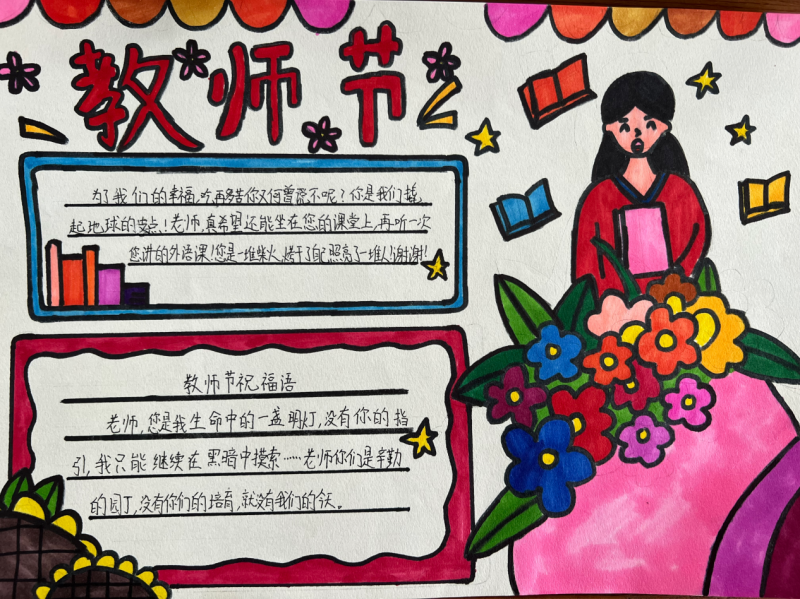 教师节
为了我们的幸福,今再多苦你又何曾说不呢?你是我们撬
起地球的支点!老师,真希望还能坐在您的课堂上,再听一次
您讲的外语课!您是一堆柴火,烤干了自己照亮了一堆人!谢谢!
教师节祝福语
老师,您是我生命中的一盏明灯,没有你的指
引,我只能继续在黑暗中摸索……老师你们是辛勤
的园丁,没有你们的培育,就没有我们的今天。